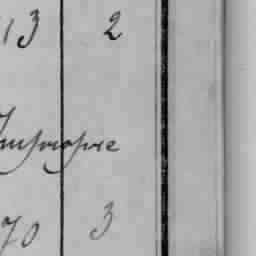 13 2
Impropre
70 3